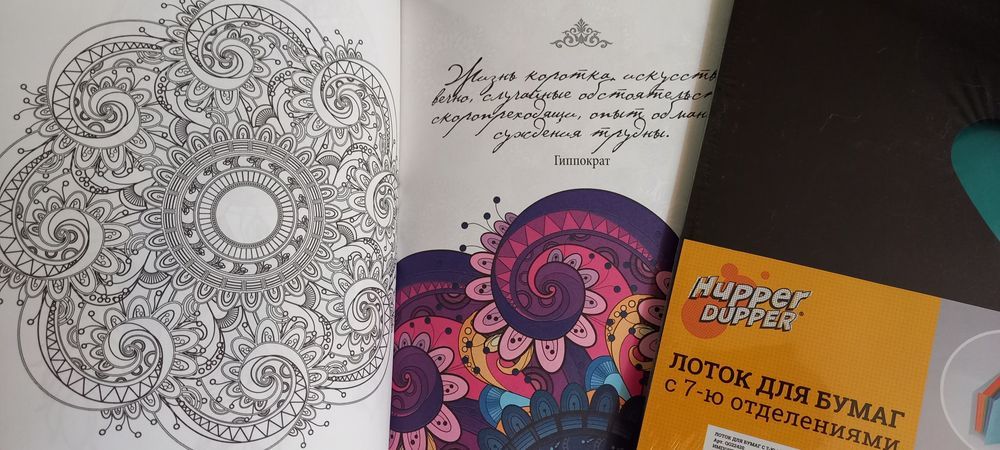 Жизнь коротка, искусств
вечно, случайные обстоятельс
скоропреходящи, опыт обман
суждения трудны.
Гиппократ
Hupper
DUPPER®
ЛОТОК ДЛЯ БУМАГ
с 7-ю отделениями
ЛОТОК ДЛЯ БУМАГ С 7-Ю